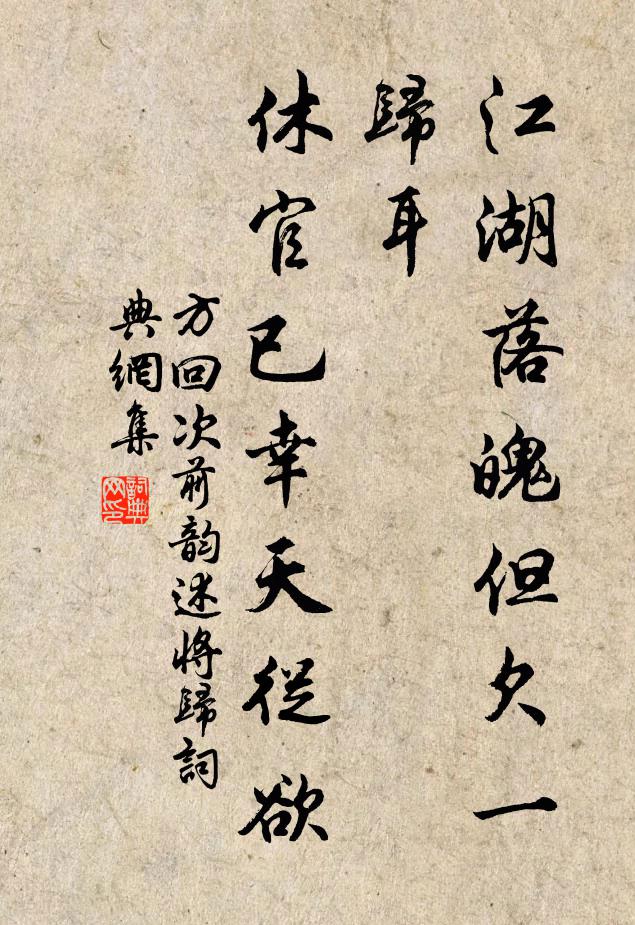 江湖落魄但欠一
歸耳
休官已幸天從欲
方回次前韵述將歸詞
典網集
詞典網印